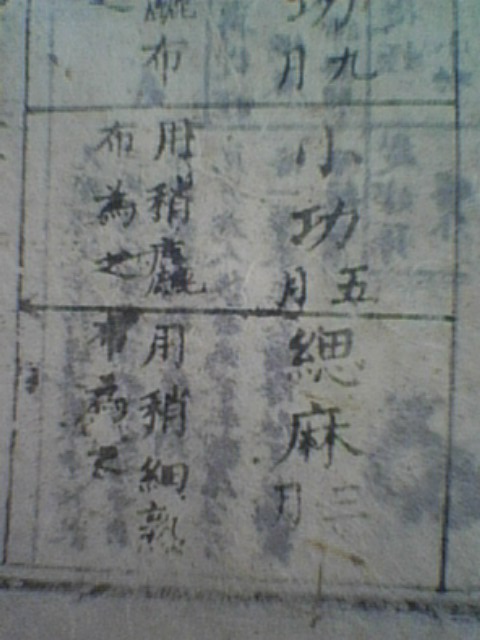 功九月
麄布
小功五月
用稍麄
布為之
緦麻三月
用稍細熟
布為之